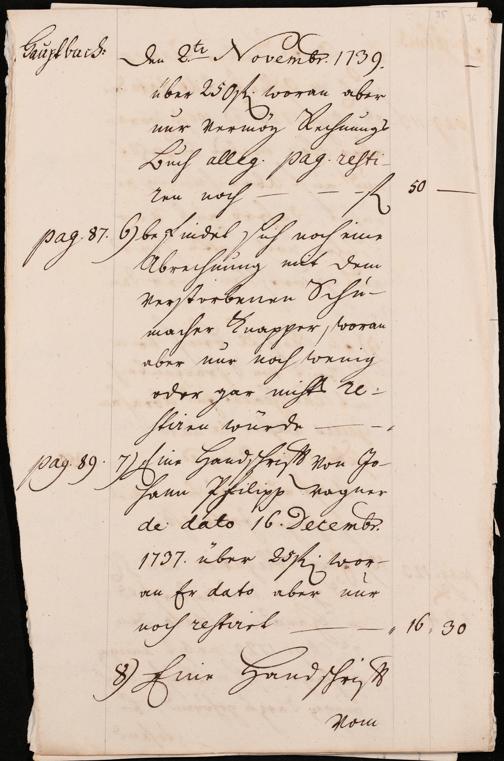 Den 2.te Novembr. 1739.
über 250 fl. woran aber
nur vermög Rechnungs
Buch alleg. pag. resti-
ren noch — — — fl 50 —
pag. 87. 6) befindet sich noch eine
Abrechnung mit dem
verstorbenen Schu-
macher Knapper, woran
aber nur noch wenig
oder gar nichts re-
stiren würde — — "
pag. 89. 7) Eine Handschrifft von Jo-
hann Philipp Wagner
de dato 16. Decembr.
1737. über 25 fl. wor-
an Er dato aber nur
noch restirt — — " 16. 30
8) Eine Handschrifft
vom